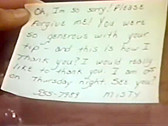 Oh, Im so sorry! Please
forgive me! You were
so generous with your
tip - and this is how I
thank you? I would really
like to thank you. I am off
on Thursday night. See you!
555-7989 MISTY